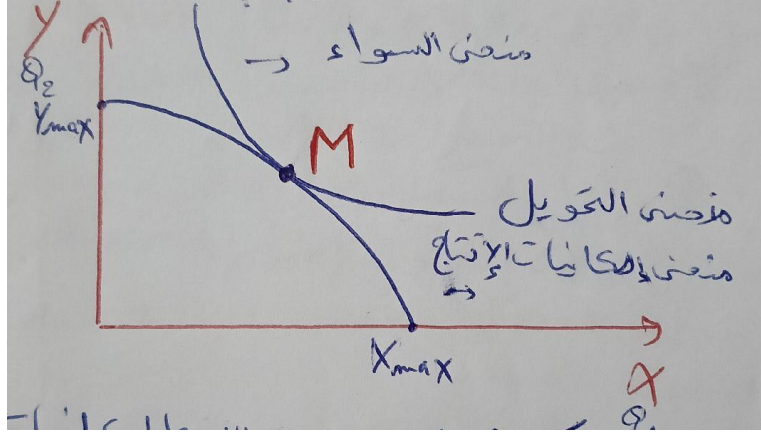 Y
Q2
منحنى السواء
Ymax
M
منحنى التحويل
منحنى إمكانيات الإنتاج
Xmax
X
Q1